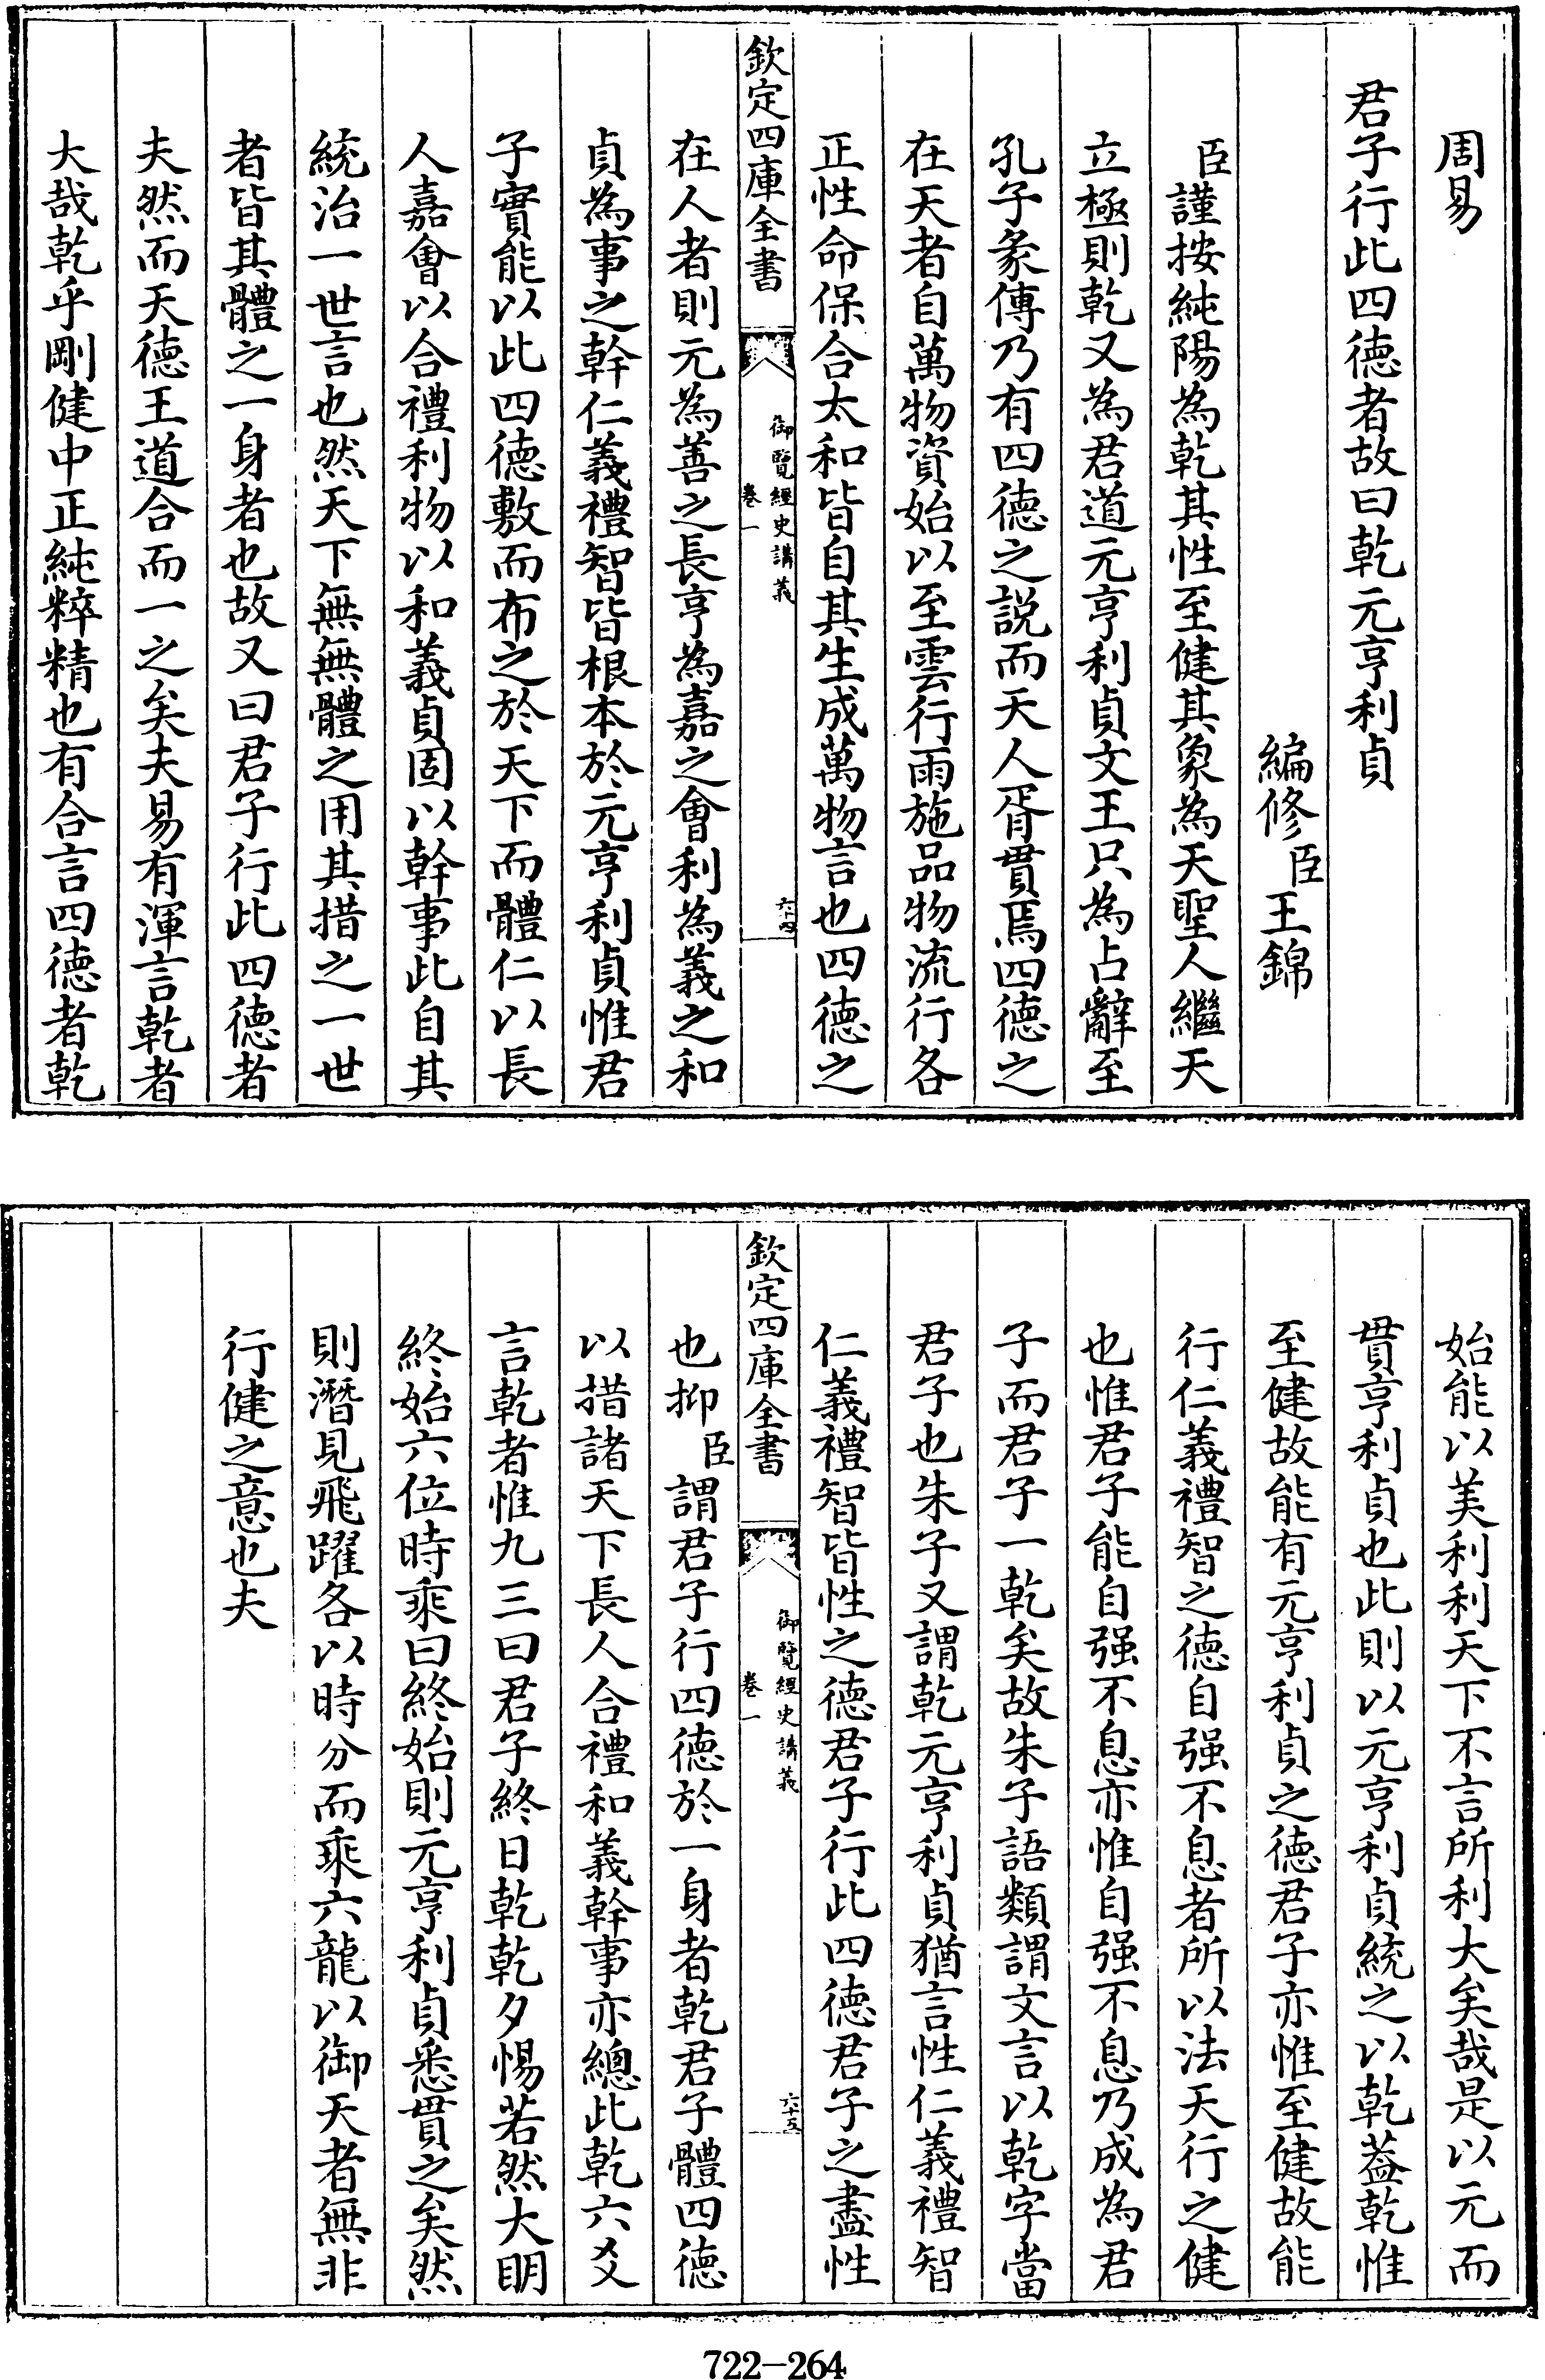 周易
君子行此四德者故曰乾元亨利貞
編修臣王錦
臣謹按純陽為乾其性至健其象為天聖人繼天
立極則乾又為君道元亨利貞文王只為占辭至
孔子彖傳乃有四德之說而天人胥貫焉四德之
在天者自萬物資始以至雲行雨施品物流行各
正性命保合太和皆自其生成萬物言也四德之
欽定四庫全書
御覽經史講義
卷一
六十四
在人者則元為善之長亨為嘉之會利為義之和
貞為事之幹仁義禮智皆根本於元亨利貞惟君
子實能以此四德敷而布之於天下而體仁以長
人嘉會以合禮利物以和義貞固以幹事此自其
統治一世言也然天下無無體之用其措之一世
者皆其體之一身者也故又曰君子行此四德者
夫然而天德王道合而一之矣夫易有渾言乾者
大哉乾乎剛健中正純粹精也有合言四德者乾
始能以美利利天下不言所利大矣哉是以元而
貫亨利貞也此則以元亨利貞統之以乾蓋乾惟
至健故能有元亨利貞之德君子亦惟至健故能
行仁義禮智之德自强不息者所以法天行之健
也惟君子能自强不息亦惟自强不息乃成為君
子而君子一乾矣故朱子語類謂文言以乾字當
君子也朱子又謂乾元亨利貞猶言性仁義禮智
仁義禮智皆性之德君子行此四德君子之盡性
欽定四庫全書
御覽經史講義
卷一
六十五
也抑臣謂君子行四德於一身者乾君子體四德
以措諸天下長人合禮和義幹事亦總此乾六爻
言乾者惟九三曰君子終日乾乾夕惕若然大明
終始六位時乘曰終始則元亨利貞悉貫之矣然
則潛見飛躍各以時分而乘六龍以御天者無非
行健之意也夫
722-264